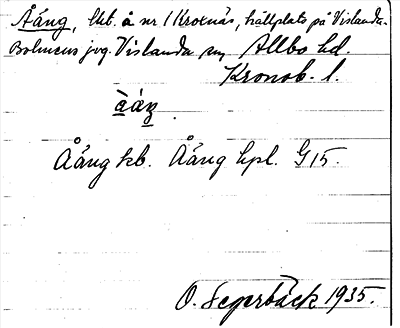 Åäng, lkt. å nr 1 Kroxnäs, hållplats på Vislanda-
Bolmens jvg. Vislanda sn Allbo hd.
Kronob. l.
Åäng kb. Åäng hpl. G15.
O. Segerbäck 1935.